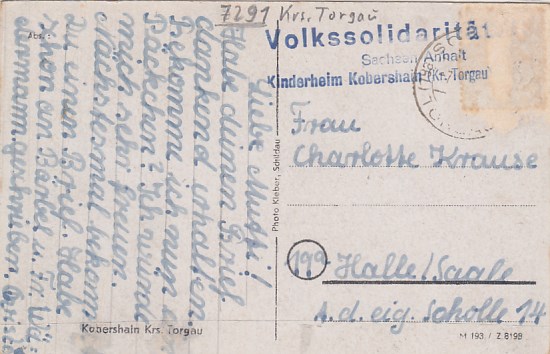 7291 Krs. Torgau
Volkssolidarität
Sachsen Anhalt
Kinderheim Kobershain (Kr. Torgau)
Abs.:
Liebe Mutti!
Habe deinen Brief
dankend erhalten.
Bekomm ich nun
Päckchen? Ich würde
mich sehr freun.
nächstemal bekom
zu einen Brief. Habe
schon an Bärbel u. Fr. Wil
Frau
Charlotte Krause
19a
Halle/Saale
A. d. eig. Scholle 14
Photo Kleber, Schildau
Kobershain Krs. Torgau
M 193 / Z 8198